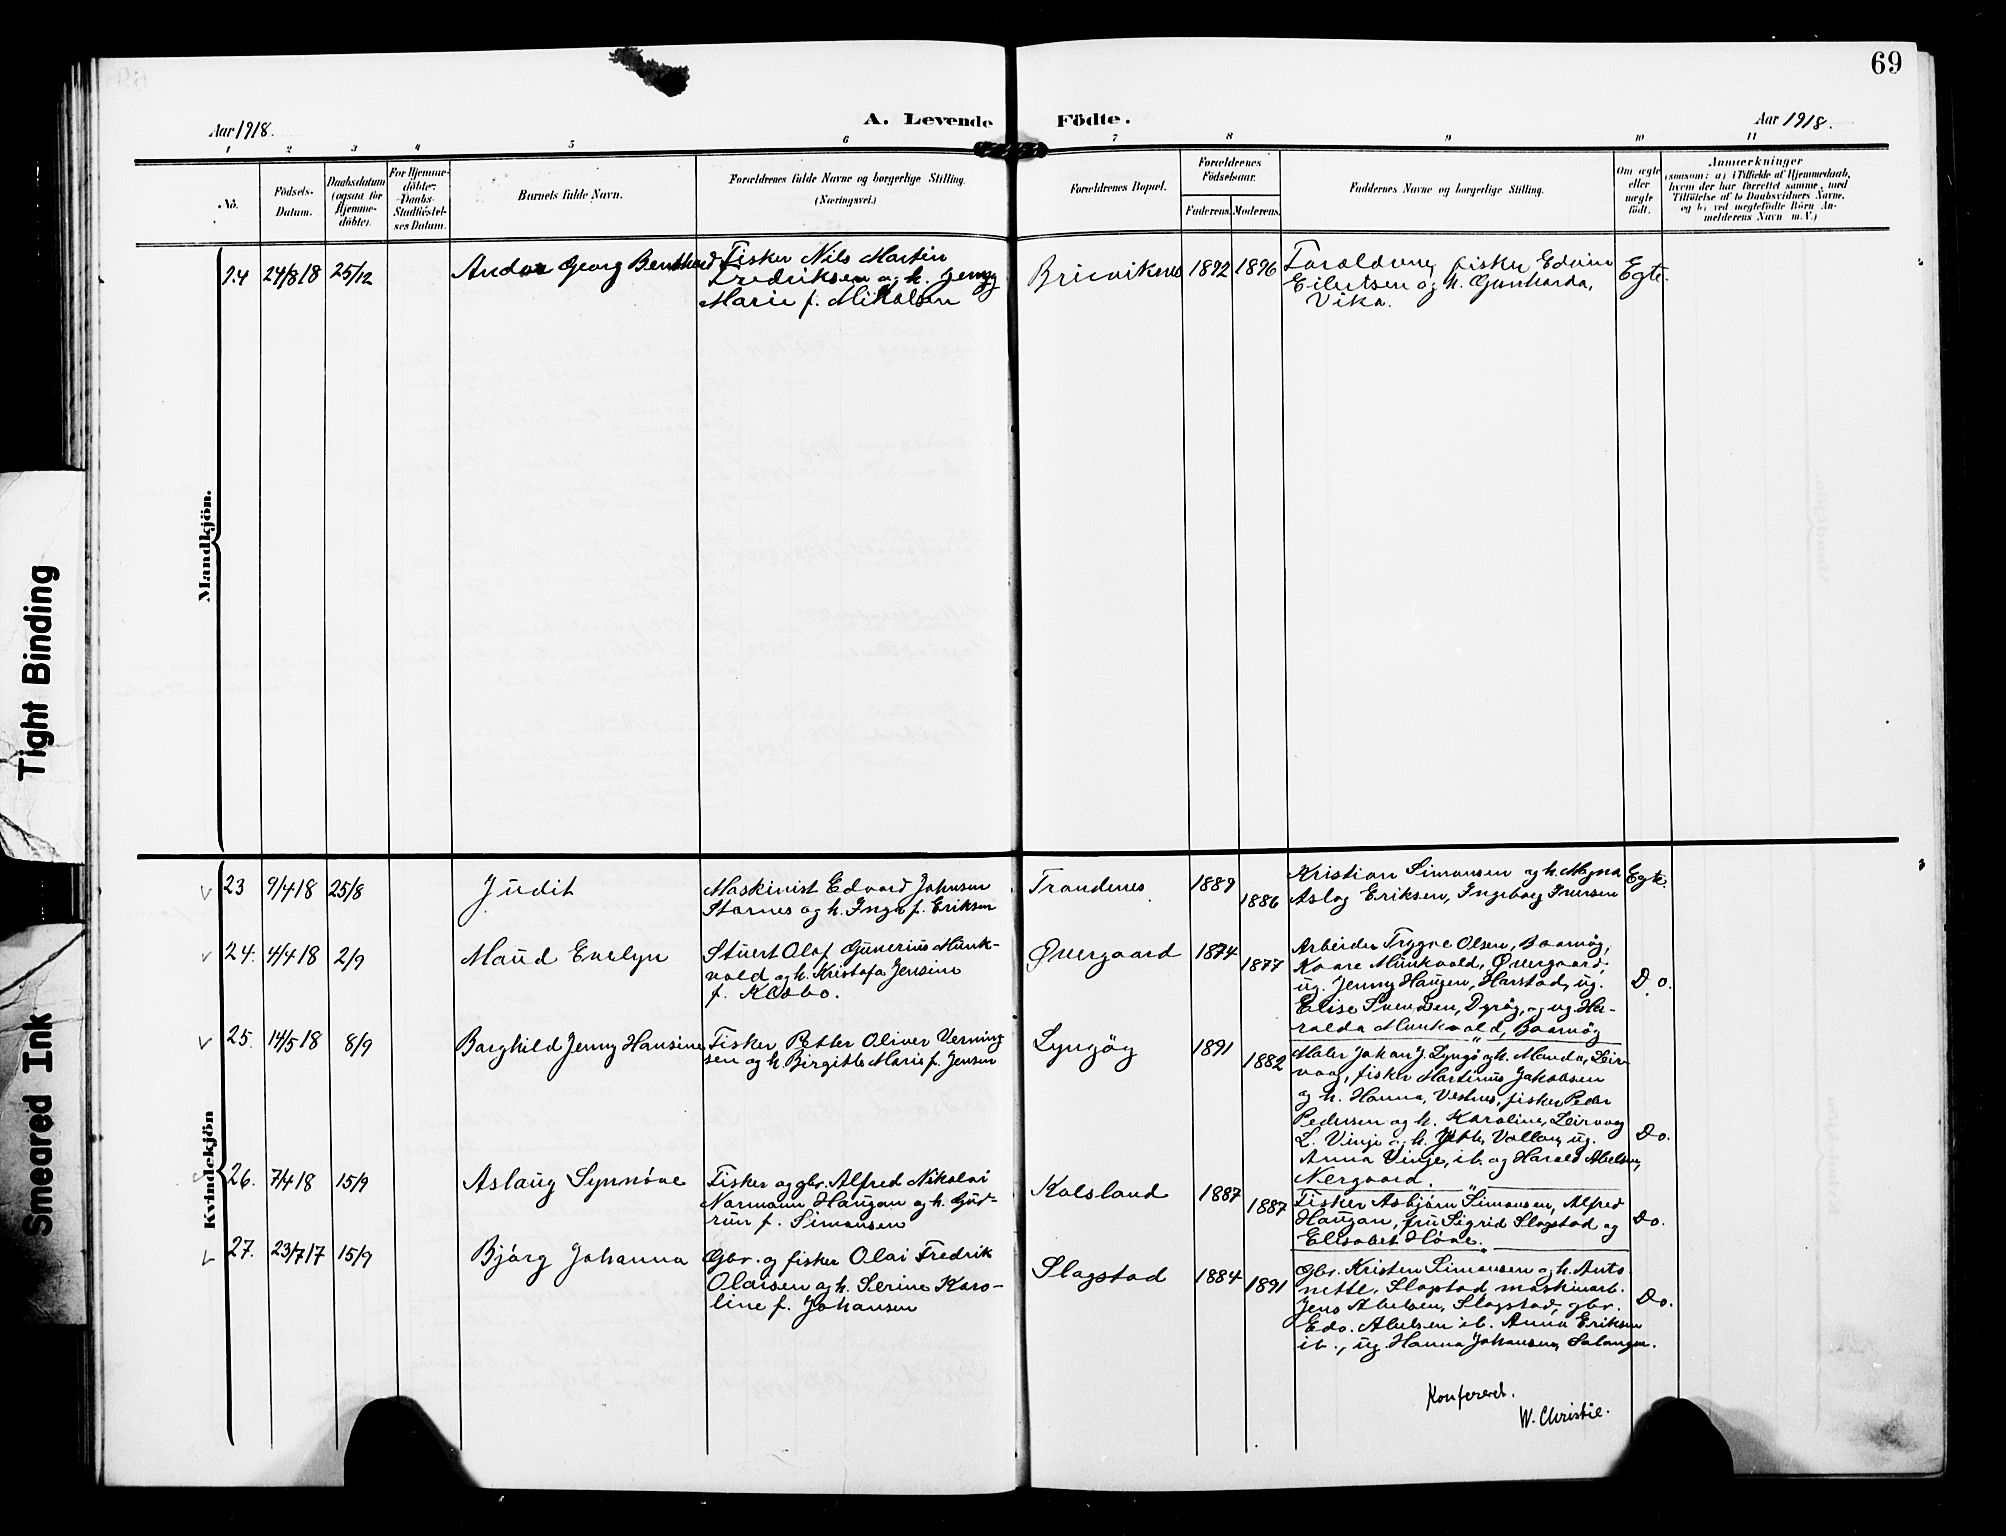 69
Aar 1918.
A. Levende Födte.
Aar 1918.
1 2 3 4 5 6 7 8 9 10 11
No.
Födsels-
Datum.
Daabsdatum
(ogsaa for
Hjemme-
döbte).
For Hjemme-
döbte:
Daabs-
Stadfæstel-
ses Datum.
Barnets fulde Navn.
Forældrenes fulde Navne og borgerlige Stilling.
(Næringsvei.)
Forældrenes Bopæl.
Forældrenes
Födselsaar.
Faderens. Moderens.
Faddernes Navne og borgerlige Stilling.
Om ægte
eller
uægte
födt.
Anmærkninger
(saasom: a) i Tilfælde af Hjemmedaab,
hvem der har forrettet samme, med
Tilföielse af to Daabsvidners Navne,
og b) ved uægtefödte Börn An-
melderens Navn m. V.)
Mandkjön.
24 24/8 18 25/12
Andor Georg Bernhard
Fisker Nils Martin
Fredriksen og h. Jenny
Marie f. Mikalsen
Breivikenes
1892 1896
Foreldrene, fisker Edvin
Eilertsen og h. Gunharda,
Vika.
Egte.
Kvindekjön
23 9/4 18 25/8
Judit
Maskinist Edvard Johnsen
Stornes og h. Inga f. Eriksen
Trondenes
1889
1886
Kristian Simonsen og h. Magna
Aslag Eriksen, Ingeborg Iversen
Egte.
24. 4/4 18 2/9
Maud Evelyn
Stuert Olaf Gunerius Munk-
vold og h. Kristofa Jensine
f. Klæbo.
Øvergaard
1874
1877
Arbeider Trygve Olsen, Baarøg,
Kaare Munkvold, Øvergaard,
ug. Jenny Haugen, Harstad, ug.
Elise Svendsen, Dyrøy, og ug. Ha-
ralda Munkvold,
Do.
25. 14/5 18 8/9
Borghild Jenny Hansine
Fisker Petter Oliver Verning
sen og h. Birgitte Marie f. Jensen
Lyngøy
1891
1882
Maler Johan J. Lyngø og h. Manda, Leir-
vaag, fisker Martinus Jakobsen
og h. Hanna, Vestnes, fisker Peder
Pedersen og h. Karoline, Leirvaag
L. Vinje og h. Vollan, ug.
Anna Vinje, ib. og Harald Abelsen,
Nergaard.
Do.
26. 7/4 18 15/9
Aslaug Synnøve
Fisker og gbr. Alfred Nikolai
Normann Haugan og h. Gud-
run f. Simonsen
Kalsland
1887
1887
Fisker Asbjørn Simonsen, Alfred
Haugan, fru Sigrid Slagstad og
Elisabet Høve.
Do.
27. 23/7 17 15/9
Bjórg Johanna
Gbr. og fisker Olai Fredrik
Olaisen og h. Serine Karo-
line f. Johansen
Slagstad
1884
1891
Gbr. Kristen Simonsen og h. Anto
nette, Slagstad, maskinarb.
Jens Abelsen, Slagstad, gbr.
Edv. Abelsen ib. Anna Eriksen
ib., ug. Hanna Johansen, Salangen.
Do.
Konfereret.
W. Christie.
Tight Binding
Smeared Ink